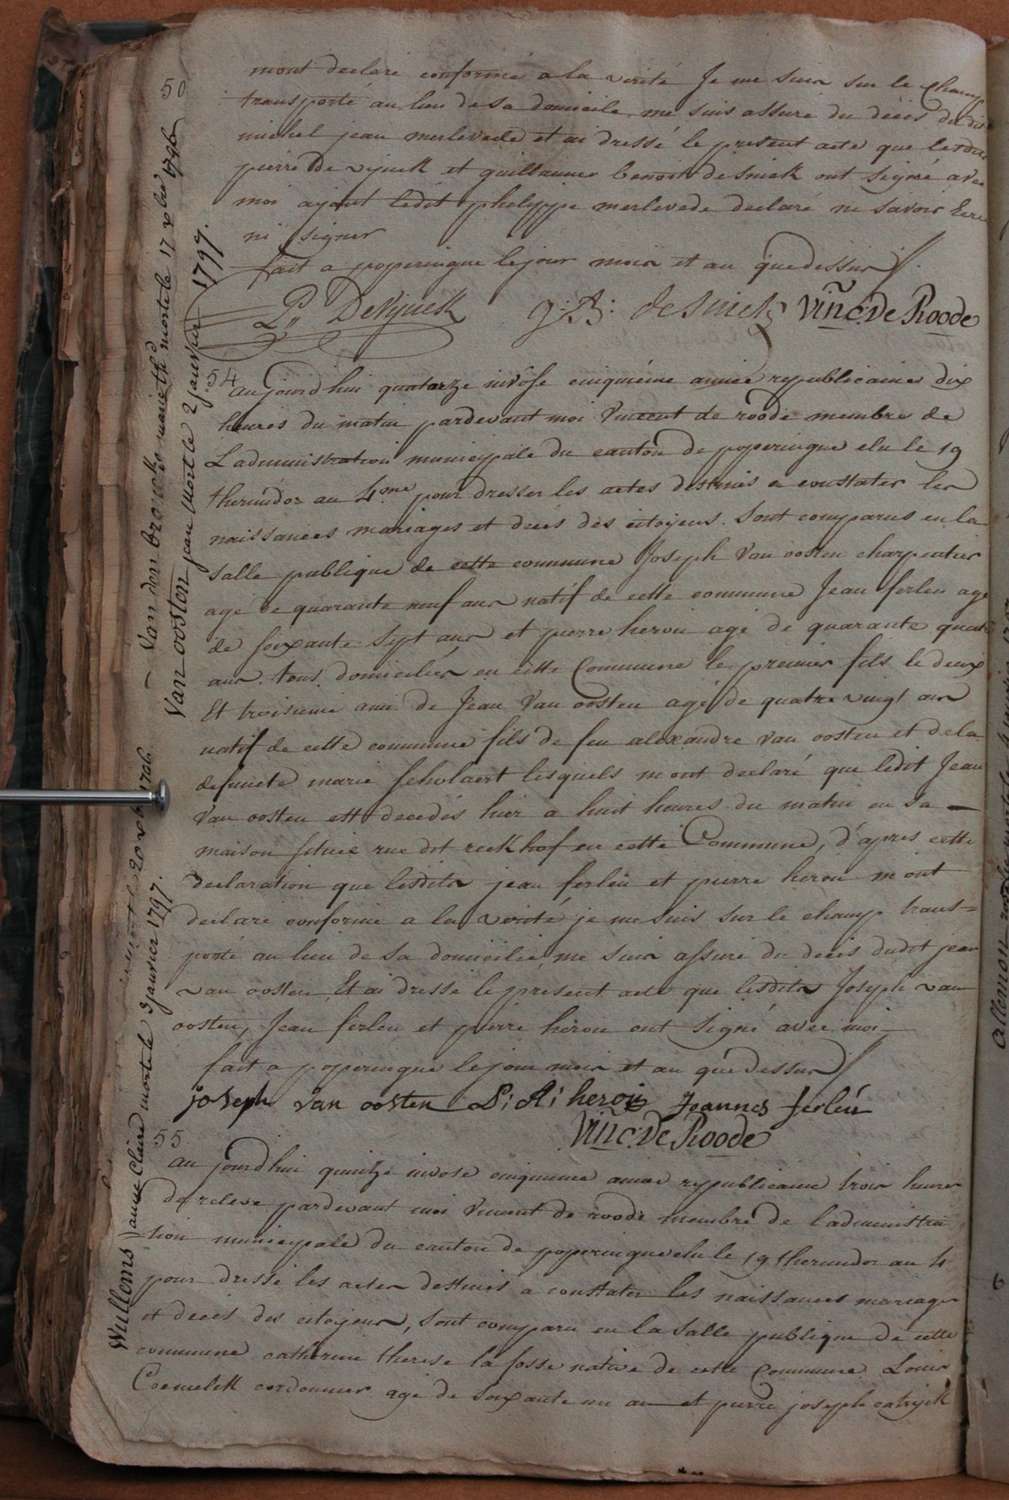 50
mont declaré conforme a la verité Je me suis sur le champ
transporté au lieu de sa domicile, me suis assure du décès du dit
michel jean merlevede et ai dressé le present acte que lesdits
pierre De vijnck et guillaume benoit de snick ont signé avec
moi ayant ledit phelippe merlevede declaré ne savoir ecrire
ni signer
fait a poperingue le jour mois et an que dessus
P. De Vijnck g: B: de Snick Vinc. De Roode
54
aujourdhui quatorze nivôse cinquiéme année republicaines dix
heures du matin pardevant moi Vincent de roode membre de
Ladministration municipale du canton de poperingue elu le 19
thermidor an 4me pour dresser les actes destinés a constater les
naissances mariages et décés dés citoyens. Sont comparus en la
salle publique de cette commune Joseph Van oosten charpentier
agé de quarante neuf ans natif de cette commune Jean ferleu agé
de soixante sept ans et pierre herou agé de quarante quatre
ans. tous domiciliés en cette Commune le premier fils le deux
Et troisieme amis de Jean Van oosten agé de quatre vingt ans
natif de cette commune fils de feu alexandre Van oosten et de la
defuncte marie scholaert lesquels m'ont declaré que ledit Jean
Van oosten est decedés hier a huit heures du matin en sa
maison située rue dit reckhof en cette Commune, d'apres cette
declaration que lesdits jean ferleu et pierre herou m'ont
declare conforme a la verité je me suis sur le champ trans=
porté au lieu de sa domicilie, me suis assuré du decés dudit jean
van oosten, Et ai dressé le present acte que lesdits Joseph van
oosten, Jean ferleu et pierre herou ont signé avec moi
fait a poperingue le jour mois et an que dessus
joseph van oosten herou Jeannes ferleu
Vinc. De Roode
55
aujourdhui quinze nivose cinquieme année republicaine trois heures
de releve pardevant moi Vincent de roode membre de ladministra
tion municipale du canton de poperingue elu le 19 thermidor an 4
pour dressé les actes destinés a constater les naissances mariages
et decés des citoyens, sont comparu en la salle publique de cette
commune catherine therese la fosse native de cette Commune Louis
Coemelck cordonnier agé de soixante un an et pierre joseph catryck
Van oosten jean Mort le 2 janvier 1797.
Willems anne Claire morte le 3 janvier 1797.